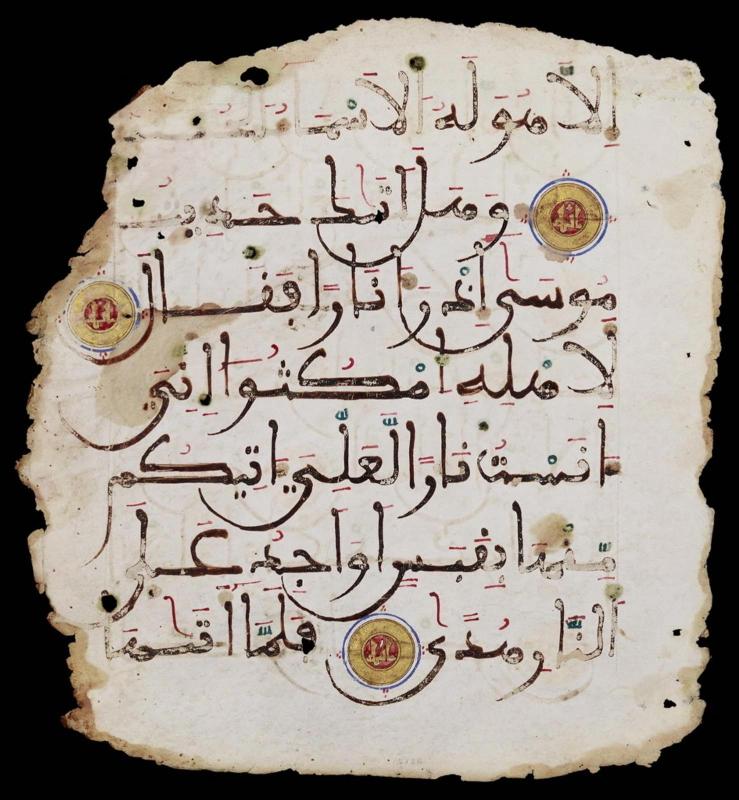 إلا هو له الأسماء الحسنى
وهل أتىك حديث
موسى إذ رءا نارا فقال
لأهله امكثوا إني
ءانست نارا لعلي ءاتيكم
منها بقبس أو أجد على
النار هدى فلما أتىها